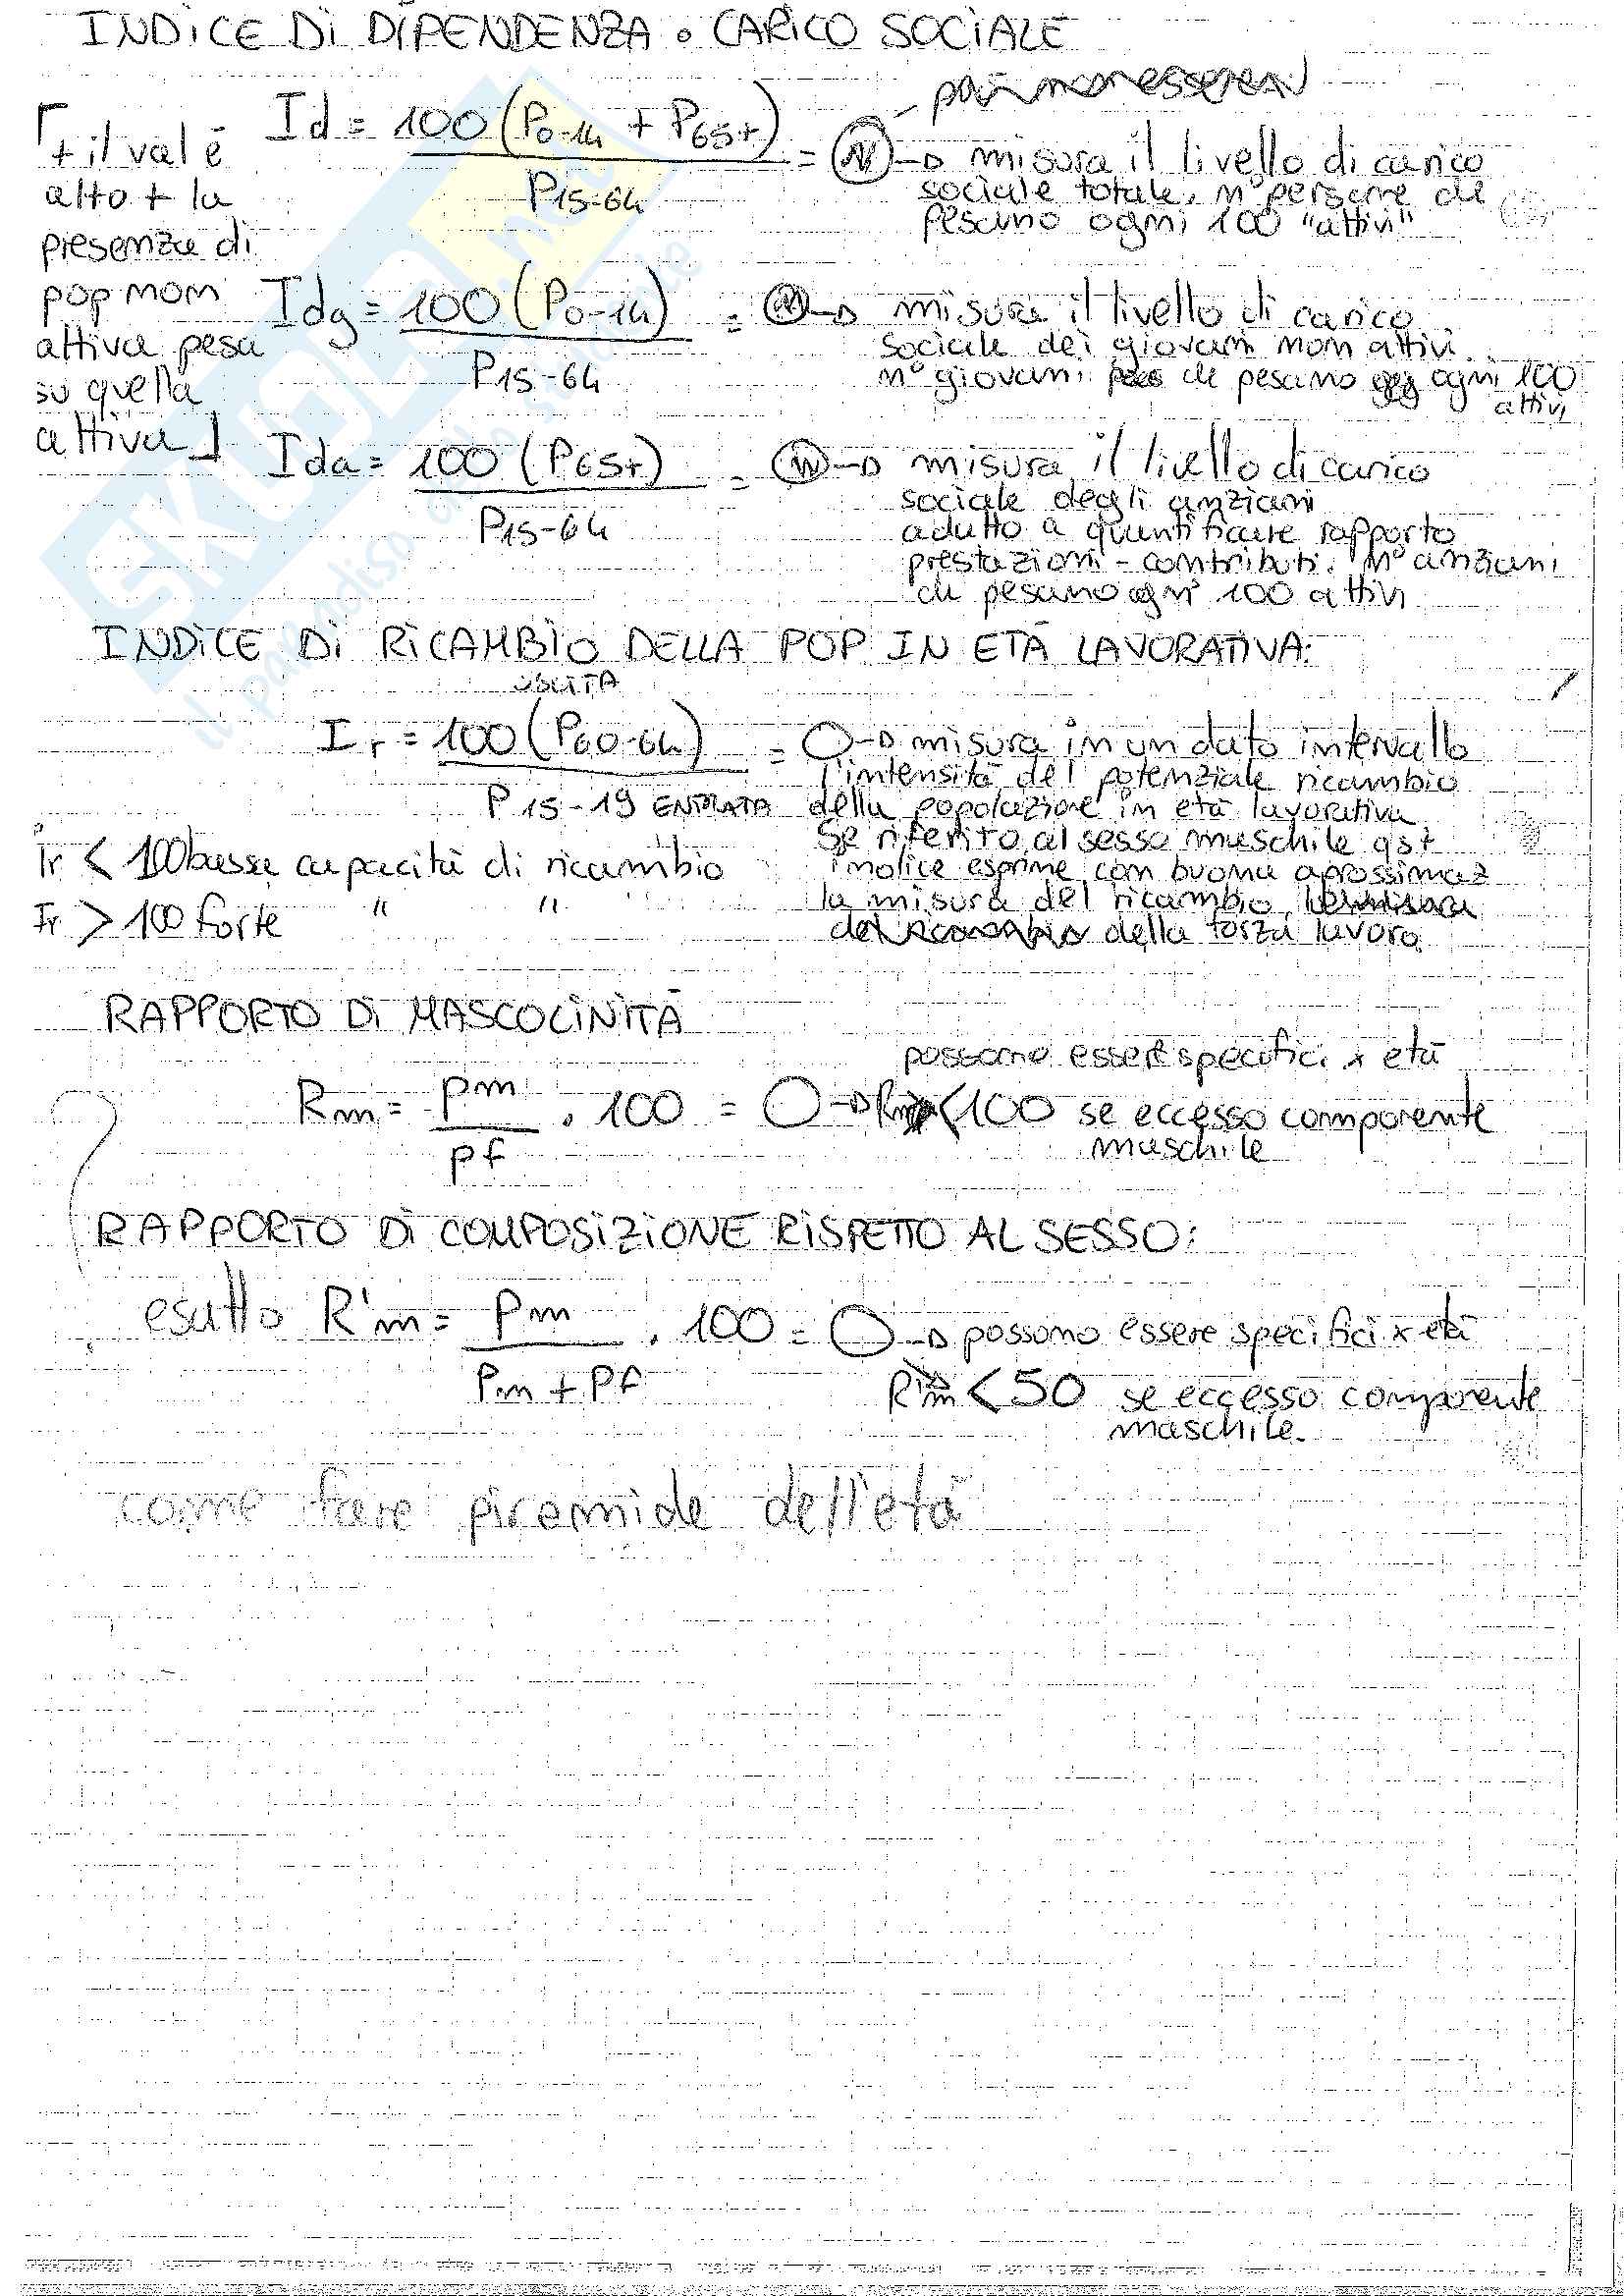 INDICE DI DIPENDENZA o CARICO SOCIALE
Id = 100 (P0-14 + P65+) = N → misura il livello di carico
P15-64
sociale totale, n° persone che
pesano ogni 100 "attivi"
+ il val è
alto + la
presenza di
pop non
attiva pesa
su quella
attiva
Idg = 100 (P0-14) = N → misura il livello di carico
P15-64
sociale dei giovani non attivi.
n° giovani che pesano ogni 100
attivi
Ida = 100 (P65+) = N → misura il livello di carico
P15-64
sociale degli anziani
adatto a quantificare rapporto
prestazioni - contributi. N° anziani
che pesano ogni 100 attivi
INDICE DI RICAMBIO DELLA POP IN ETÀ LAVORATIVA:
USCITA
Ir = 100 (P60-64) = O → misura in un dato intervallo
P 15-19 ENTRATA
l'intensità del potenziale ricambio
della popolazione in età lavorativa
Se riferito al sesso maschile qst
indice esprime con buona aprossimaz
la misura del ricambio
della forza lavoro.
Ir < 100 bassa capacità di ricambio
Ir > 100 forte " "
RAPPORTO DI MASCOLINITÀ
possono essere specifici x età
Rm = Pm . 100 = O → Rm < 100 se eccesso componente
Pf
maschile
RAPPORTO DI COMPOSIZIONE RISPETTO AL SESSO:
esatto R'm = Pm . 100 = O → possono essere specifici x età
Pm + Pf
R'm < 50 se eccesso componente
maschile.
come fare piramide dell'età